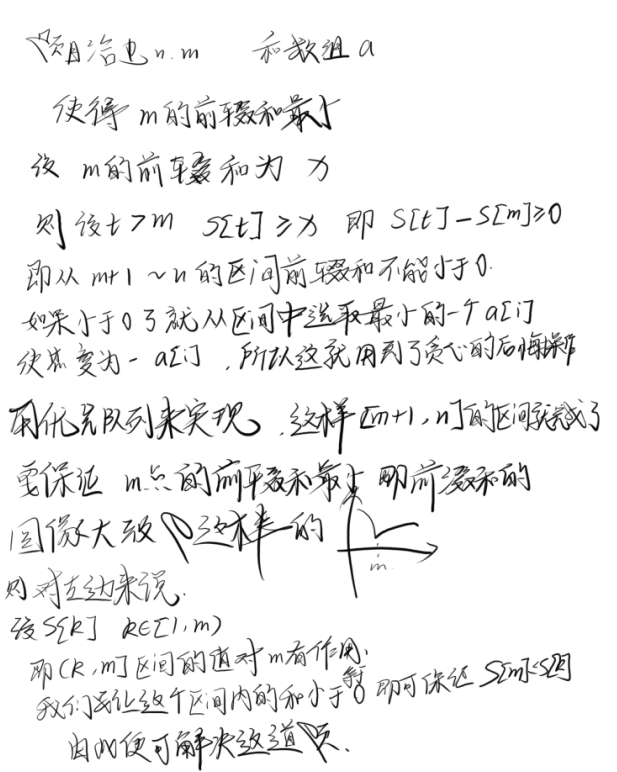 题目给出 n. m 和数组 a
使得 m 的前缀和最小
设 m 的前缀和为 x
则设 t > m S[t] ≥ x 即 S[t] - S[m] ≥ 0
即从 m+1 ~ n 的区间前缀和不能小于 0.
如果小于 0 了就从区间中选取最小的一个 a[i]
使其变为 - a[i] , 所以这就用到了贪心的后悔操作
用优先队列来实现 , 这样 [m+1, n] 的区间就完成了
要保证 m 点的前缀和最小 即前缀和的
图像大致 这样的
m.
则对左边来说.
设 S[k] k∈[1, m)
即 (k, m] 区间的值对 m 有作用.
我们要让这个区间内的和小于等于 0 即可保证 S[m]<S[k]
因此便可解决这道题.